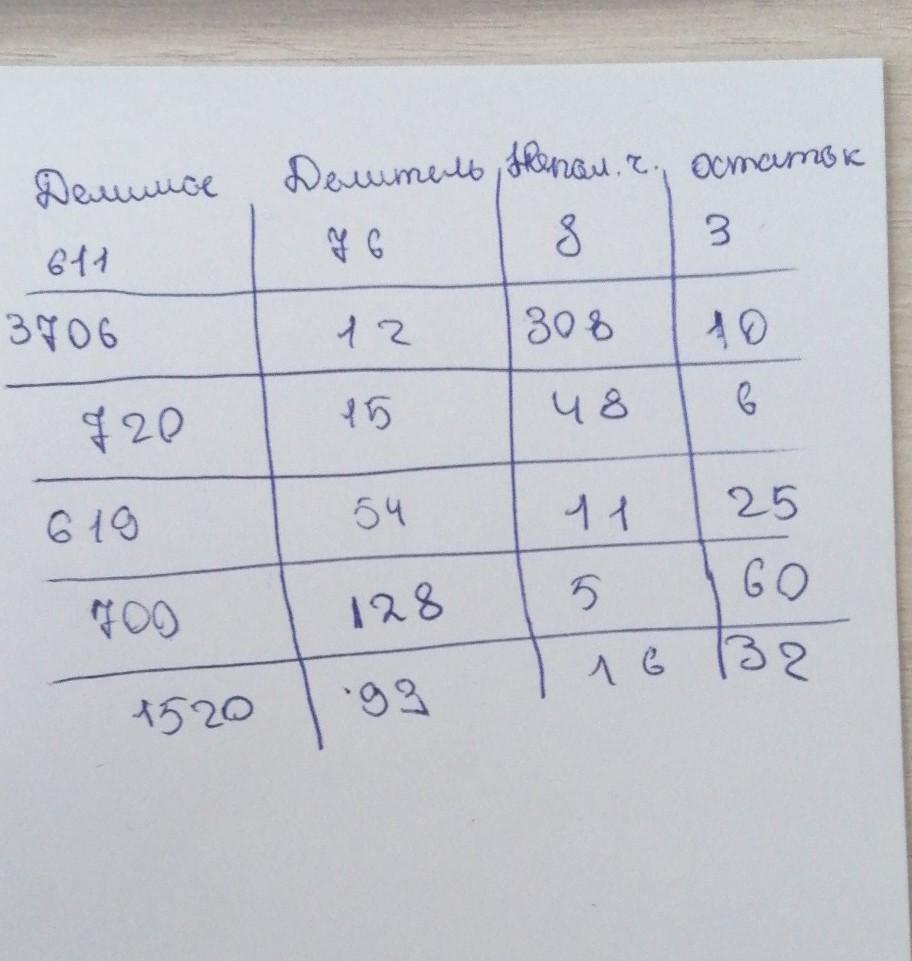 Делимое Делитель Непол. ч. остаток
611 76 8 3
3706 12 308 10
720 15 48 6
619 54 11 25
700 128 5 60
1520 93 16 32